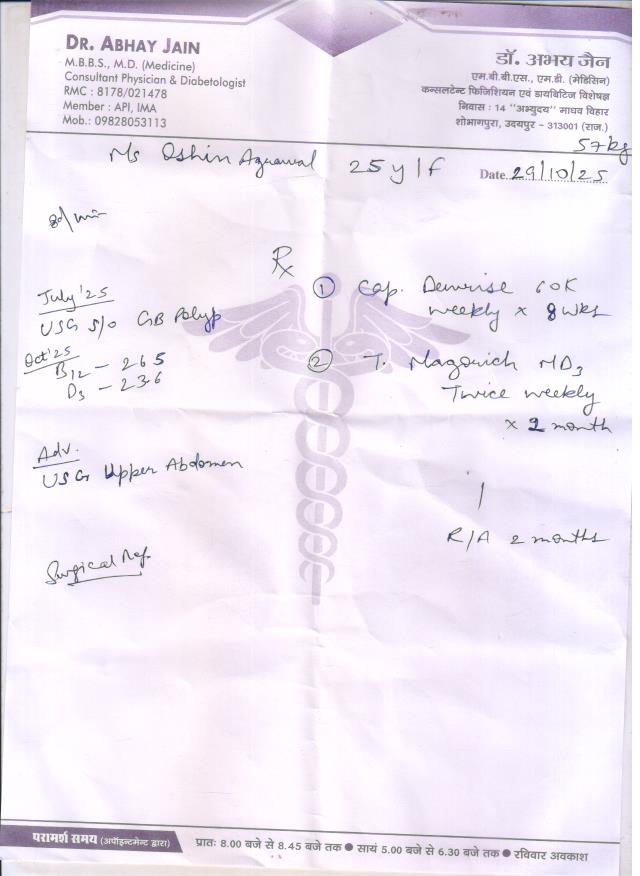 DR. ABHAY JAIN
M.B.B.S., M.D. (Medicine)
Consultant Physician & Diabetologist
RMC : 8178/021478
Member : API, IMA
Mob.: 09828053113
डॉ. अभय जैन
एम.बी.बी.एस., एम.डी. (मेडिसिन)
कन्सलटेन्ट फिजिशियन एवं डायबिटिज विशेषज्ञ
निवास : 14 "अभ्युदय" माधव विहार
शोभागपुरा, उदयपुर – 313001 (राज.)
57kg
Ms Oshin Agrawal 25 y / F
Date 29/10/25
Rx
July '25
USG s/o GB Polyp
Oct '25
B12 – 265
D3 – 23.6
Adv.
USG Upper Abdomen
Surgical Ref.
① Cap. 60K
weekly x 8 wks
② T. MD3
Twice weekly
x 2 month
R/A 2 months
परामर्श समय (अपॉइन्टमेन्ट द्वारा)
प्रातः 8.00 बजे से 8.45 बजे तक ● सायं 5.00 बजे से 6.30 बजे तक ● रविवार अवकाश